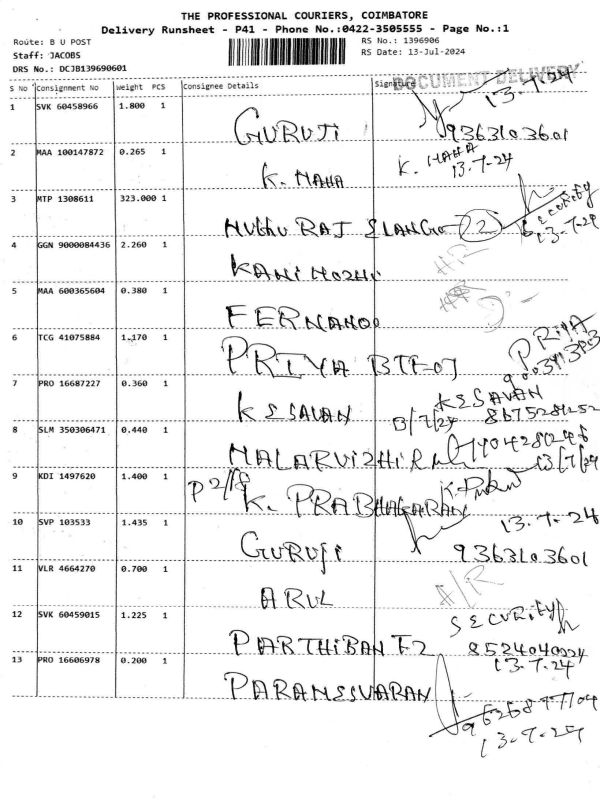 THE PROFESSIONAL COURIERS, COIMBATORE
Delivery Runsheet - P41 - Phone No.:0422-3505555 - Page No.:1
Route: B U POST
RS No.: 1396906
Staff: JACOBS
RS Date: 13-Jul-2024
DRS No.: DCJB139690601
DOCUMENT DELIVERY
S No Consignment No Weight PCS Consignee Details Signature
13-7-24
1 SVK 60458966 1.800 1 GURUJI 9363103601
2 MAA 100147872 0.265 1 K. MAHA K. MAHA 13-7-24
3 MTP 1308611 323.000 1 MUTHU RAJ ELANGO 22 SECURITY 13-7-24
4 GGN 9000084436 2.260 1 KANIMOZHI
5 MAA 600365604 0.380 1 FERNANDO
6 TCG 41075884 1.170 1 PRIYA PRIYA
7 PRO 16687227 0.360 1 KESAVAN KESAVAN 13/7/24
8 SLM 350306471 0.440 1 MALARVIZHI 13/7/24
9 KDI 1497620 1.400 1 K. PRABHAGARAN
13-7-24
10 SVP 103533 1.435 1 GURUJI 9363103601
11 VLR 4664270 0.700 1 ARUL A/R
12 SVK 60459015 1.225 1 PARTHIBAN F2 SECURITY 13-7-24
13 PRO 16606978 0.200 1 PARAMESVARAN 13-7-24